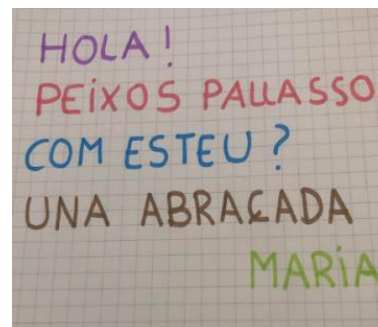 HOLA!
PEIXOS PALLASSO
COM ESTEU?
UNA ABRAÇADA
MARIA